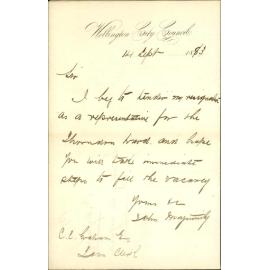 Wellington City Council
14 Sept 1883
Sir
I beg to tender my resignation
as a representative for the
Thorndon Ward and hope
you will take immediate
steps to fill the vacancy
Yours &c
John
C. C. Graham Esq
Town Clerk